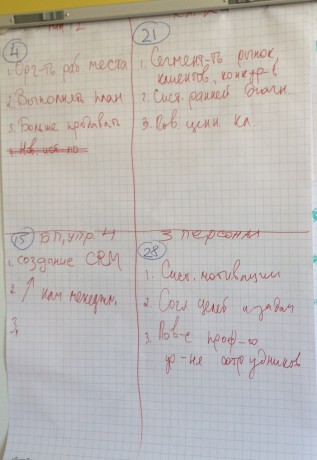 4
1. Орг-ть раб места
2. Выполнять план
3. Больше
21
1. Сегмент-ть рынок,
клиентов, конкур-в
2. Сист. ранней диагн.
3. Пов. ценн кл.
15 БП, упр 4
1. создание CRM
2. ↑ кам менеджм,
3.
3 персонал
28
1. Сист. мотивации
2. Согл целей и задач
3. Пов-е проф-го
ур-ня сотрудников